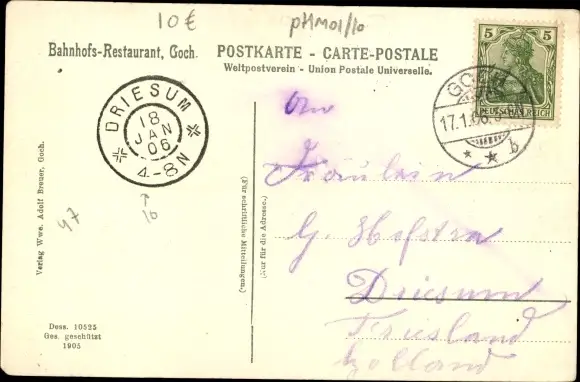 10 €
pHMol/10
Bahnhofs-Restaurant, Goch.
POSTKARTE - CARTE-POSTALE
Weltpostverein - Union Postale Universelle.
5 5
DEUTSCHES REICH
GOCH
17.1.06.
* * b
DRIESUM
18
JAN
06
4-8N
16
47
An
Fräulein
G. Hofstra
Driesum
Friesland
Holland
(Für schriftliche Mitteilungen.)
(Nur für die Adresse.)
Verlag Wwe. Adolf Breuer, Goch.
Dess. 10525
Ges. geschützt
1905